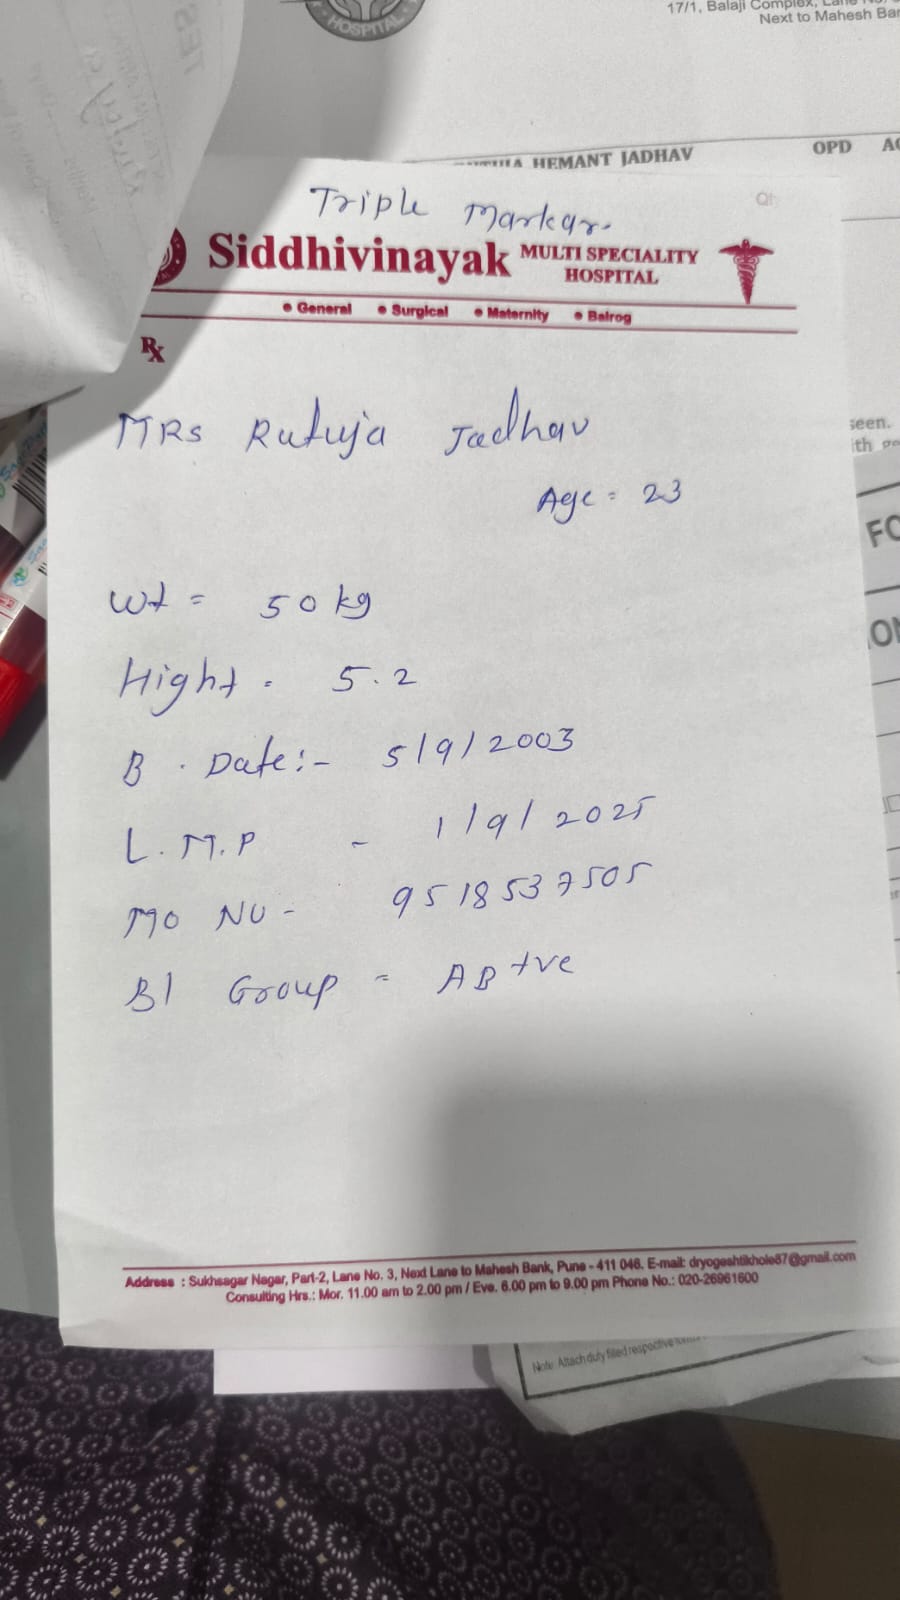 HOSPITAL
17/1, Balaji Complex,
Next to Mahesh Ban
HEMANT JADHAV
OPD
Triple Markar
Siddhivinayak MULTI SPECIALITY HOSPITAL
• General • Surgical • Maternity • Balrog
Rx
MRS Rutuja Jadhav
Age = 23
Wt = 50 kg
Hight = 5.2
B. Date:- 5/9/2003
L.M.P - 1/9/2025
MO NU - 9518537505
Bl Group = AB +ve
seen.
FO
Address : Sukhsagar Nagar, Part-2, Lane No. 3, Next Lane to Mahesh Bank, Pune - 411 046. E-mail: dryogeshtikhole87@gmail.com
Consulting Hrs.: Mor. 11.00 am to 2.00 pm / Eve. 6.00 pm to 9.00 pm Phone No.: 020-26961600
Note: Attach duly filled respective